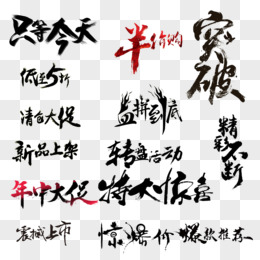 只等今天
半价购
突破
低至5折
清仓大促
盆拼到底
精彩不断
新品上架
转盘活动
年中大促
特大惊喜
震撼上市
惊爆价
爆款推荐